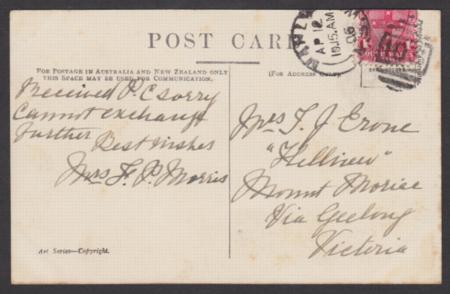 POST CARD
FOR POSTAGE IN AUSTRALIA AND NEW ZEALAND ONLY
THIS SPACE MAY BE USED, FOR COMMUNICATION.
(FOR ADDRESS ONLY.)
AP 12
10.15.AM
06
Received P.C sorry
Cannot exchange
further
Best wishes
Mrs F. P. Morris
Mrs T. J Erone
"Hillview"
Mount Moriac
Via Geelong
Victoria
Art Series—Copyright.